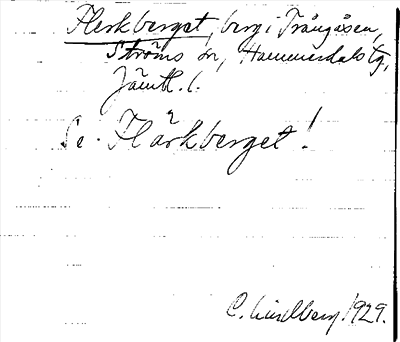 Flerkberget, berg i Trångåsen,
Ströms sn, Hammerdals tg,
Jämtl. l.
Se. Flärkberget!
C. Lindberg. 1929.